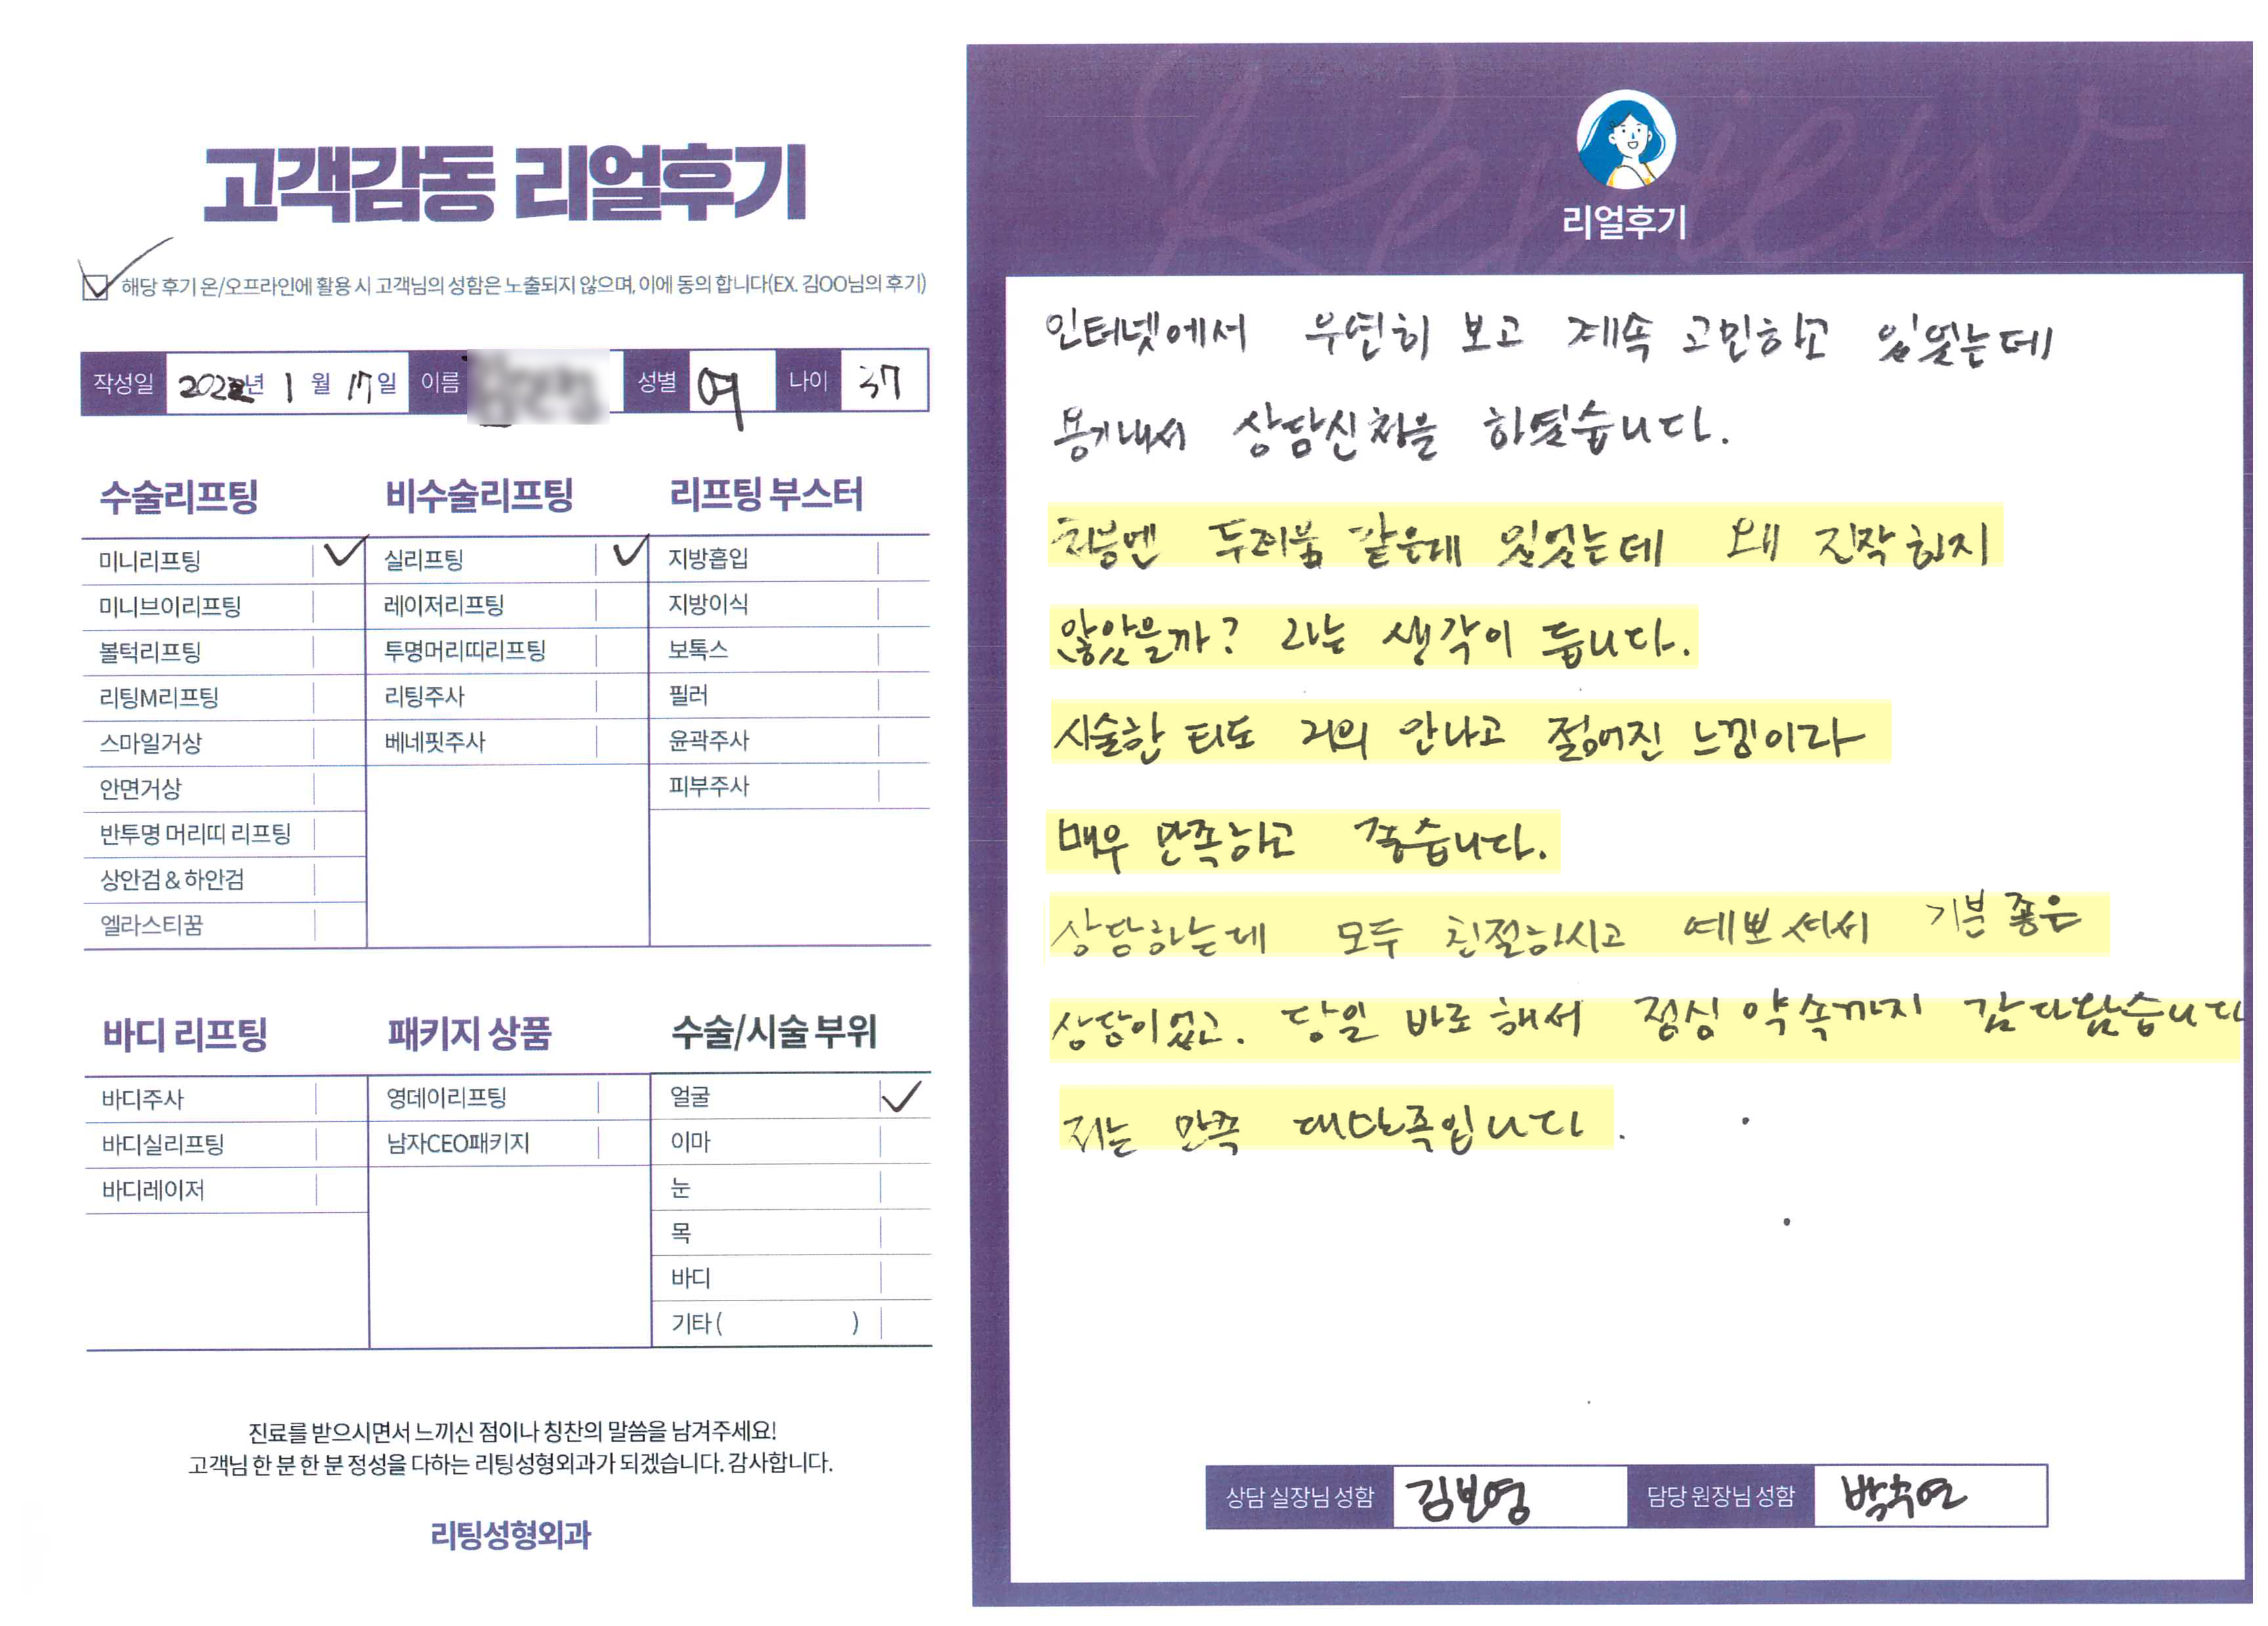 고객감동 리얼후기
해당 후기 온/오프라인에 활용 시 고객님의 성함은 노출되지 않으며, 이에 동의 합니다(EX. 김OO님의 후기)
작성일 2022년 1월 17일 이름 성별 여 나이 37
수술리프팅
미니리프팅
미니브이리프팅
볼턱리프팅
리팅M리프팅
스마일거상
안면거상
반투명 머리띠 리프팅
상안검 & 하안검
엘라스티꿈
비수술리프팅
실리프팅
레이저리프팅
투명머리띠리프팅
리팅주사
베네핏주사
리프팅 부스터
지방흡입
지방이식
보톡스
필러
윤곽주사
피부주사
바디 리프팅
바디주사
바디실리프팅
바디레이저
패키지 상품
영데이리프팅
남자CEO패키지
수술/시술 부위
얼굴
이마
눈
목
바디
기타 ( )
진료를 받으시면서 느끼신 점이나 칭찬의 말씀을 남겨주세요!
고객님 한 분 한 분 정성을 다하는 리팅성형외과가 되겠습니다. 감사합니다.
리팅성형외과
Review
리얼후기
인터넷에서 우연히 보고 계속 고민하고 있었는데
용기내서 상담신청을 하였습니다.
처음엔 두려움 같은게 있었는데 왜 진작 하지
않았을까? 라는 생각이 듭니다.
시술한 티도 거의 안나고 젊어진 느낌이라
매우 만족하고 좋습니다.
상담하는데 모두 친절하시고 예쁘셔서 기분 좋은
상담이었고. 당일 바로 해서 점심 약속까지 갔다왔습니다
저는 만족 대만족입니다.
상담 실장님 성함 김보영 담당 원장님 성함